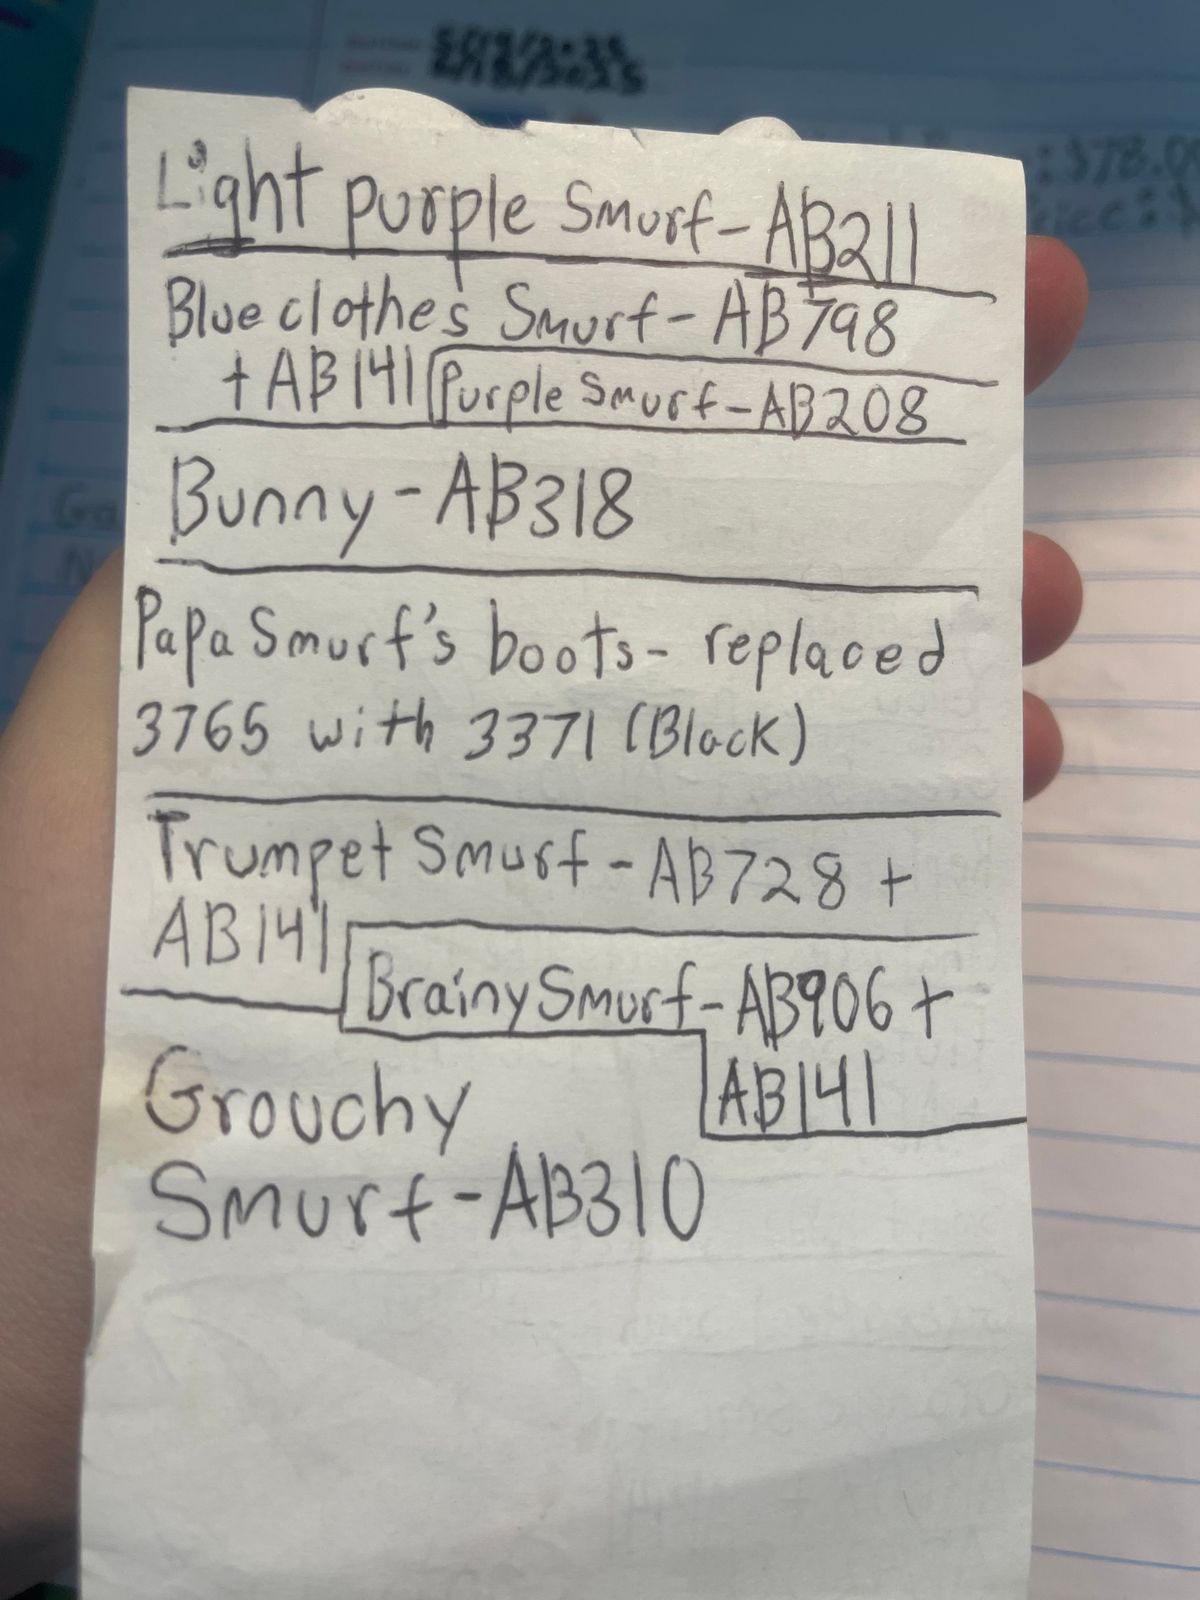 Light purple Smurf-AB211
Blue clothes Smurf-AB798
+AB141
Purple Smurf-AB208
Bunny-AB318
Papa Smurf's boots-replaced
3765 with 3371 (Black)
Trumpet Smurf-AB728+
AB141
Brainy Smurf-AB906+
AB141
Grouchy
Smurf-AB310
:378.00